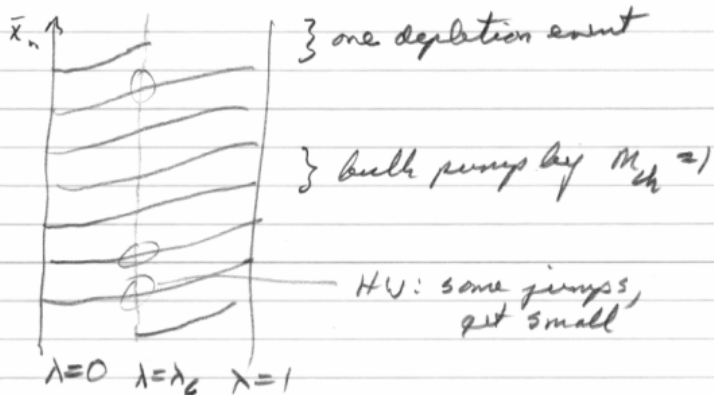 x̄ₙ
} one depletion event
} bulk pump by M_ch = 1
HW: some jumps,
get small
λ=0 λ=λ_c λ=1